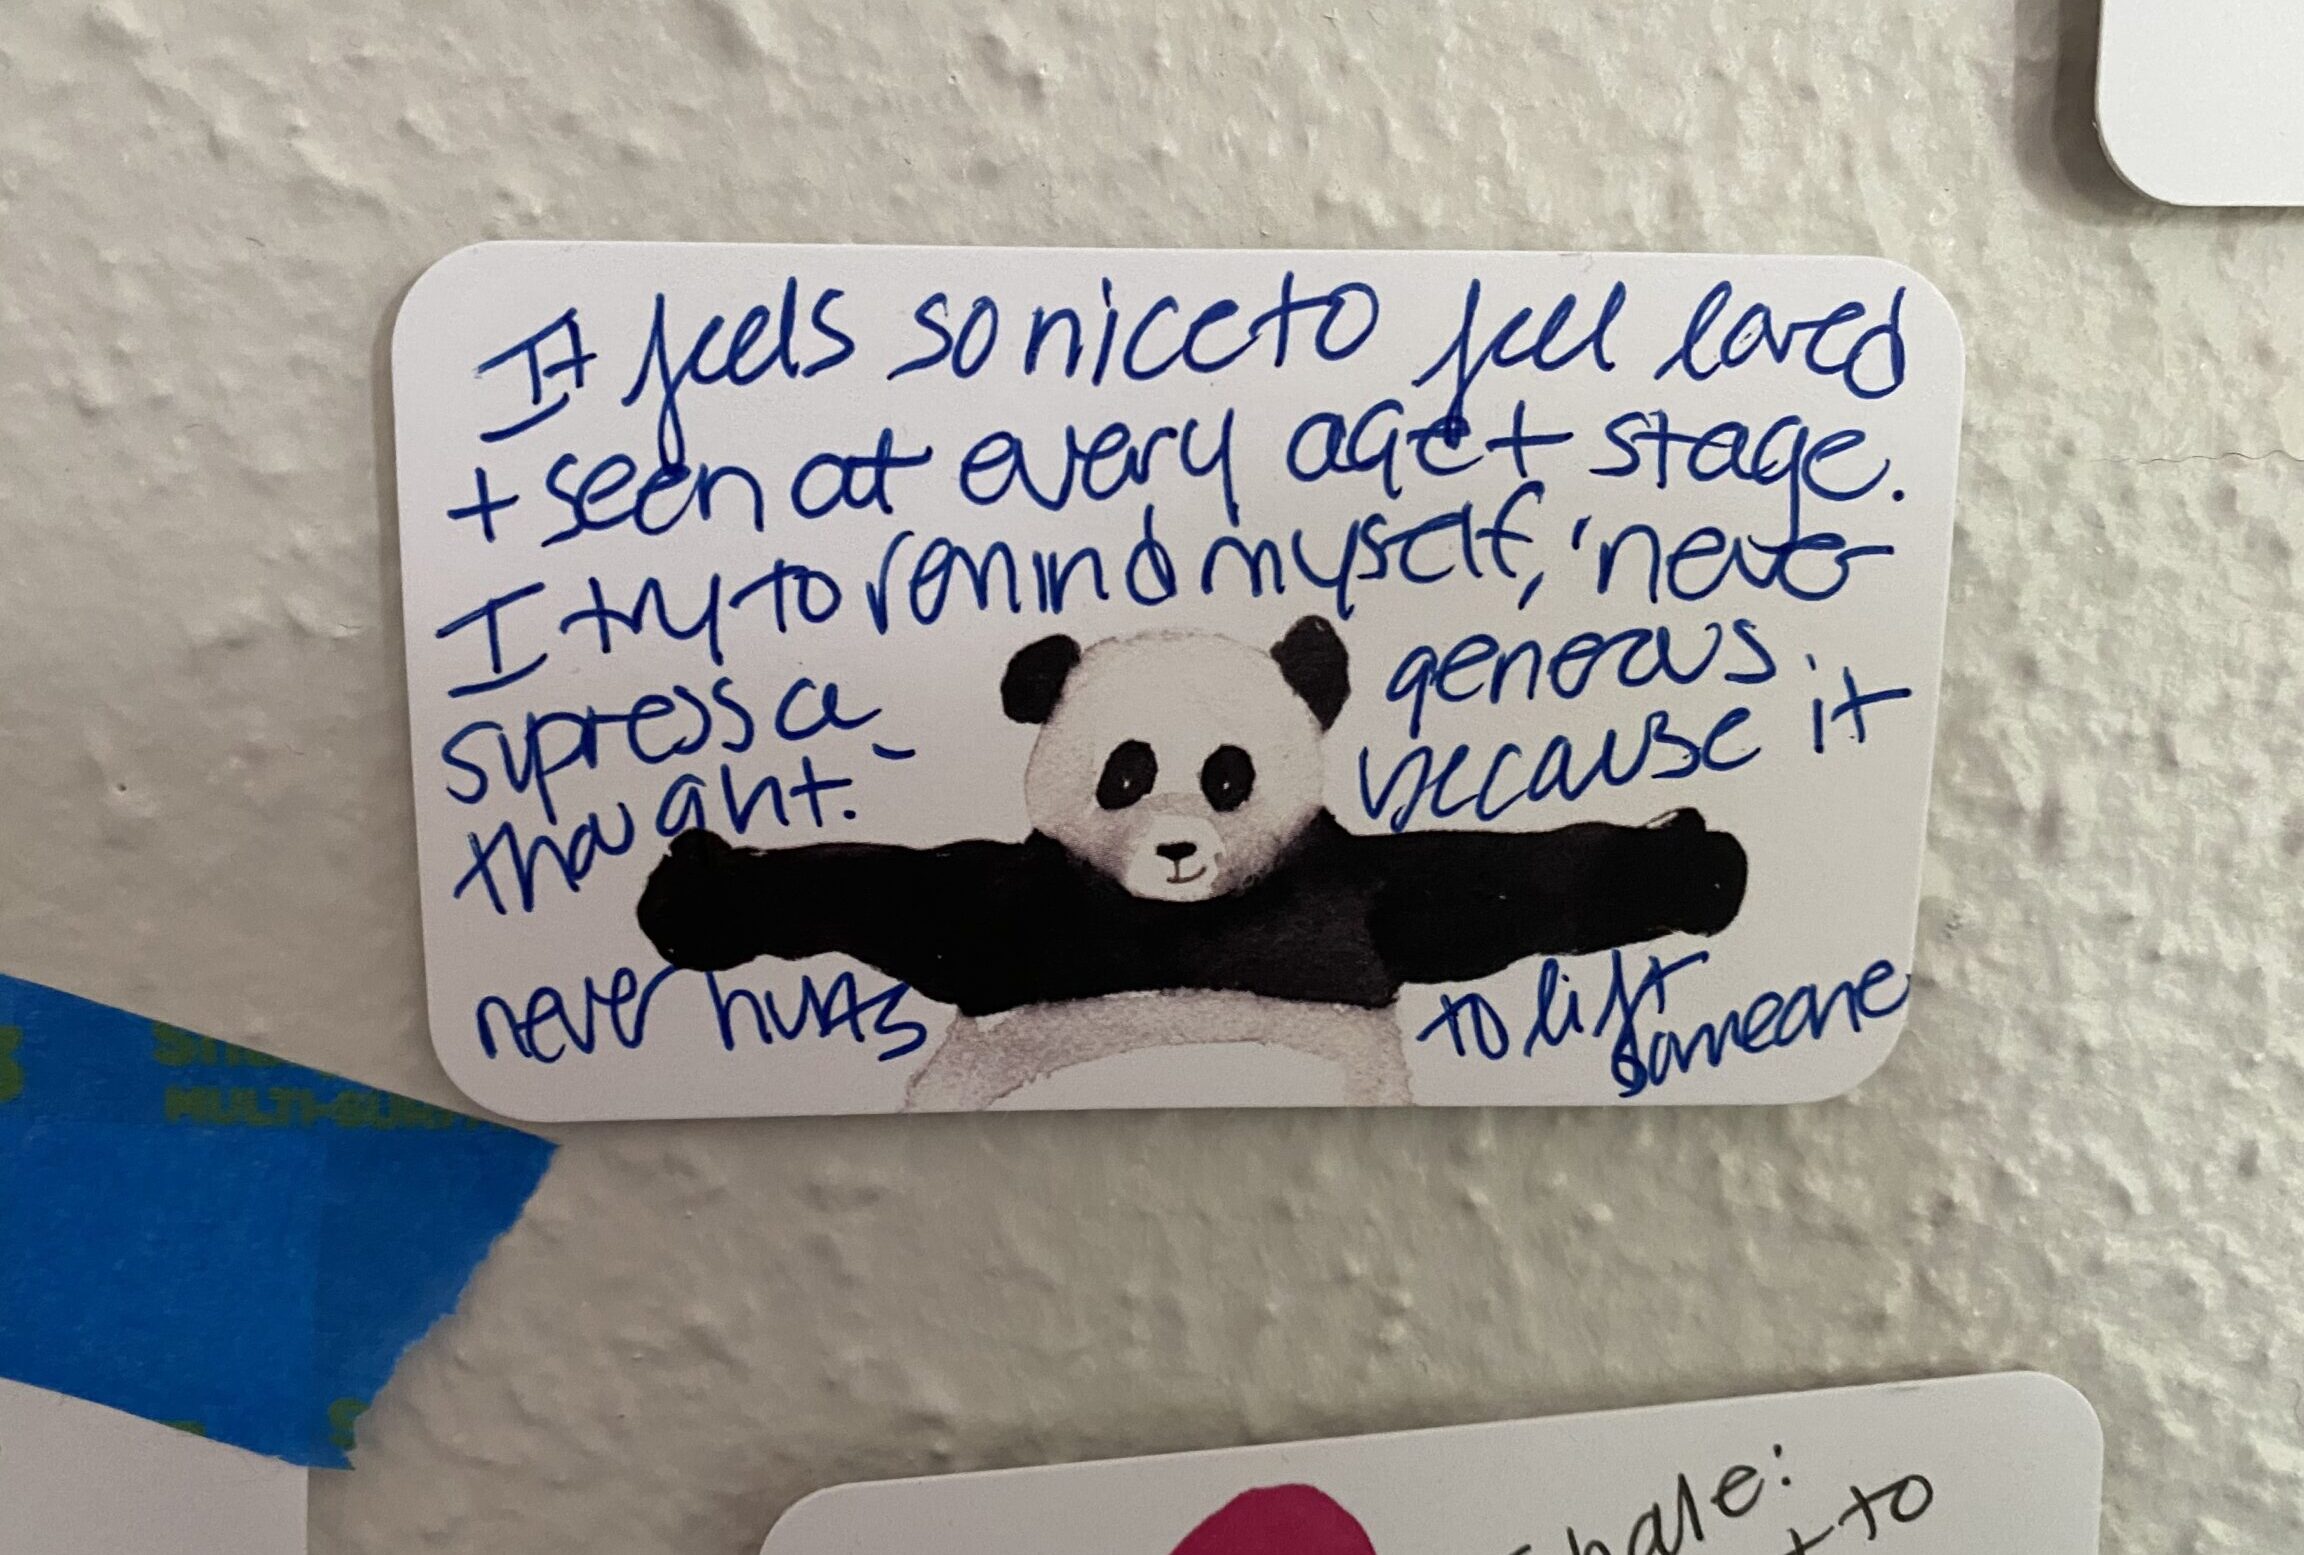 It feels so nice to feel loved
+ seen at every age + stage.
I try to remind myself, 'never
supress a generous
thought.' because it
never hurts to lift
someone
MULTI-SUR
to